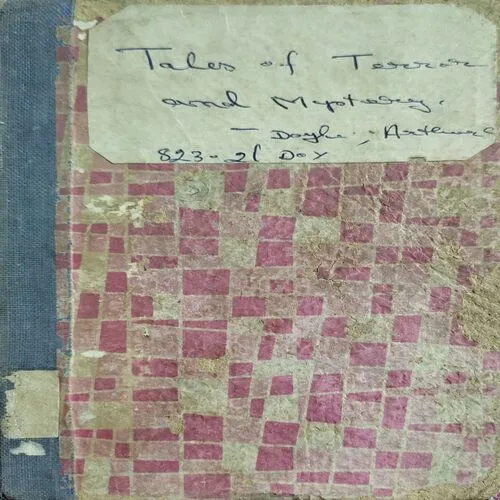 Tales of Terror
and Mystery.
— Doyle, Arthur C
823.2( DOY